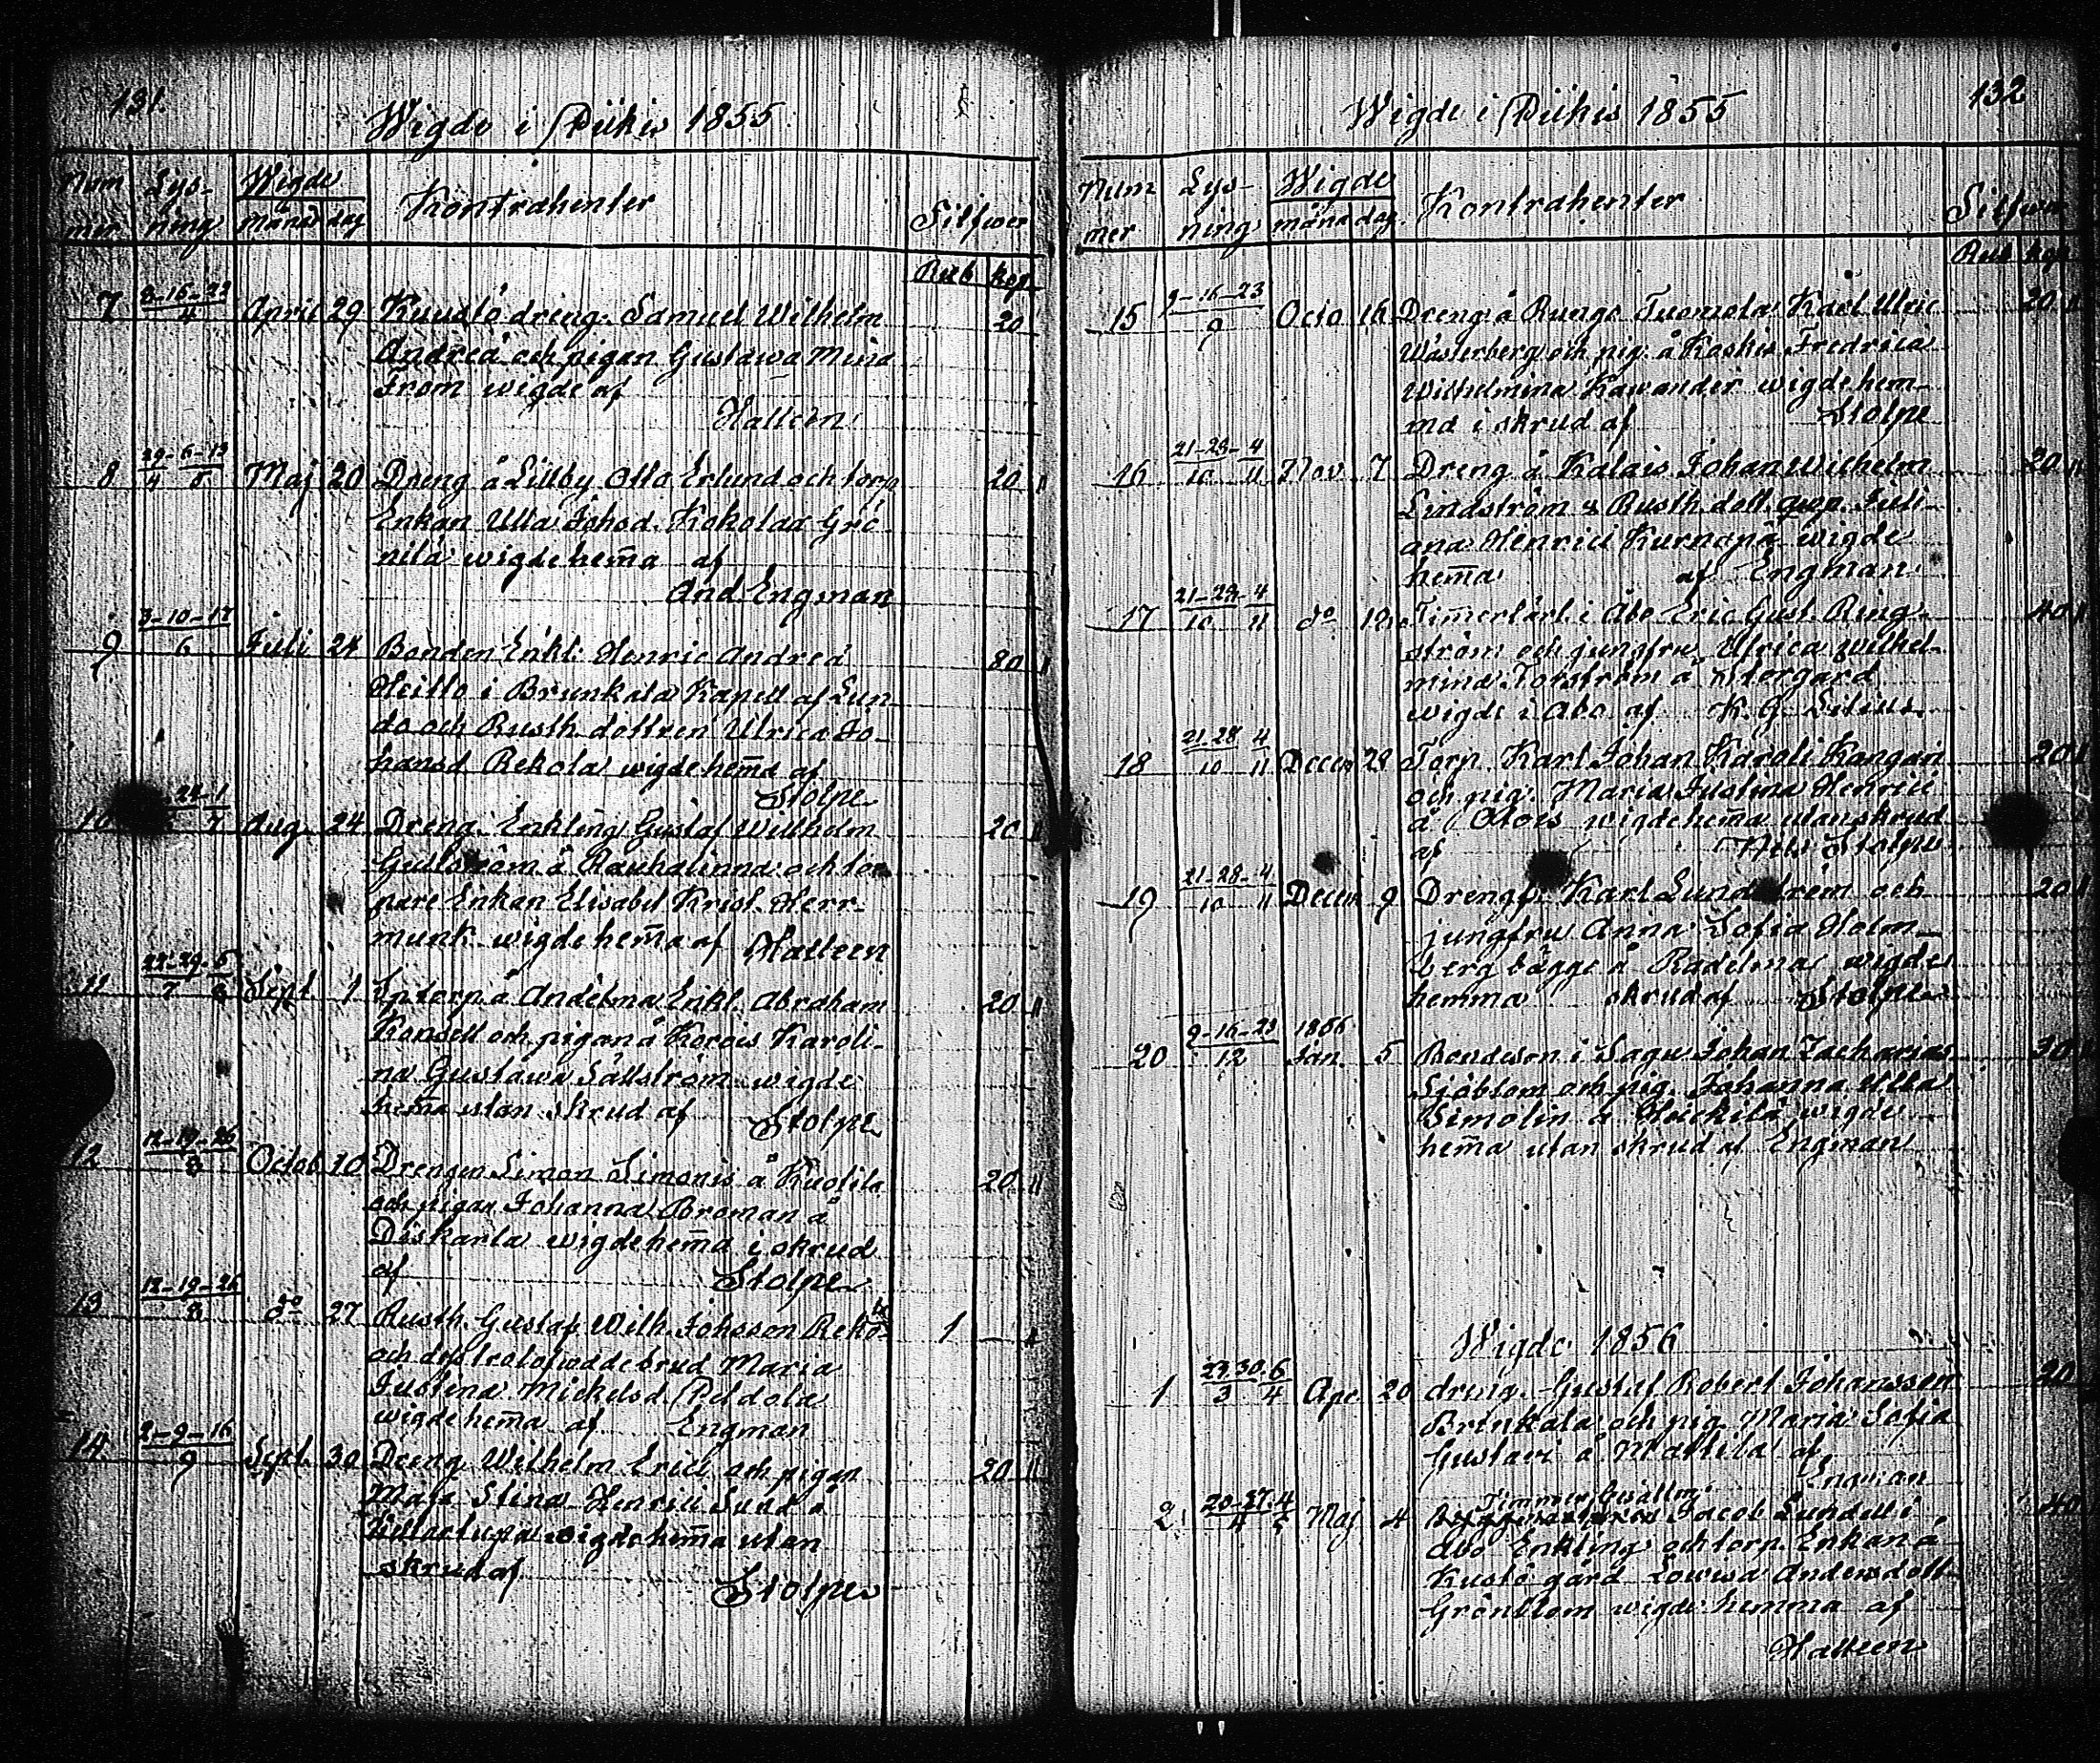 131.
Wigde i Piikis 1855
Num
mer
Lys-
ning
Wigde
månad dag
Kontrahenter
Silfwer
Rub kop
7 8-15-22/4 April 29 Kuustö dreng. Samuel Wilhelm 20
Andreä och pigan Gustawa Mina
From wigde af
Hatteen
8 29/4 - 6-13/5 Maj 20 Dreng å Lillby Otto Erlund och torp 20
Enkan Ulla Johsd. Kokolaa Grö
nilä wigde hem̄a af
And Engman
9 3-10-17/6 Juli 24 Bonden Enkl. Henric Andreä 80
Heitto i Brunkala Kapell af Lun
do och Rusth. dottren Ulrica Jo-
hansd Rekola wigde hem̄a af
Stolpe
10 24-1/7 Aug. 24 Dreng. Enkling Gustaf Willhelm 20
Gullström å Rauhalinna och tor
pare Enkan Elisabet Krist. Herr-
munk wigde hem̄a af Hatteen
11 22-29/7 - 5/8 Sept 1 å Andelma Enkl. Abraham 20
Konsell och pigan å Korois Karoli-
na Gustawa Sällström wigde
hem̄a utan skrud af Stolpe
12 12-19-26/8 Octob 10 Drengen Simon Simonis å Kuotila 20
och pigan Johanna Broman å
Diskarla wigde hem̄a i skrud
af Stolpe
13 12-19-26/8 do 27 Rusth. Gustaf Wilh. Johsson Reko la 1 —
och dess trolofwade brud Maria
Justina Mickelsd. Peldola
wigde hem̄a af Engman
14 2-9-16/9 Sept. 30 Dreng Wilhelm Erici och pigan 20
Maja Stina Henrici Sund å
wigde hem̄a utan
skrud af
Stolpe
132
Wigde i Piikis 1855
Num
mer
Lys-
ning
Wigde
månad dag
Kontrahenter
Silfwer
Rub kop
15 9-16-23/9 Octo 16 Dreng å Runga Tuomola Karl Ulric 20
Wästerberg och pig. å Koskis Fredrica
Wilhelmina Kawander wigde hem-
ma i skrud af Stolpe
16 21-28/10 - 4/11 Nov 7 Dreng å Kalais Johan Wilhelm 20
Lindström & Rusth. dott. Juli-
ana Henrici Kurnapä wigde
hem̄a af Engman
17 21-28/10 - 4/11 do 12 Tim̄erkarl. i Åbo Eric Gust. Ring- 40
ström och jungfru Ulrica wilhel-
mina Torström å Storgard
wigde i Åbo af K. G. Silius
18 21-28/10 4/11 Decem 28 Torp. Karl Johan Karoli Kangari 20
och pig. Maria Justina Henrici
å Otois wigde hem̄a utan skrud
af Nils Stolpe
19 21-28/10 - 4/11 Decem 9 Dreng. Karl Lundström och 20
jungfru Anna Sofia Holm-
berg bägge å Radelma wigde
hemma skrud af Stolpe
20 9-16-23/12 1856 Jan. 5 Bondeson i Sagu Johan Zacharias 30
Sjöblom och pig. Johanna Ulla
Simolin å Heickilä wigde
hem̄a utan skrud af Engman
Wigde 1856
1 23.30/3 6/4 Apr. 20 dreng. Gustaf Robert Johansson 20
Brinkala och pig. Maria Sofia
Gustavi å Mattila af
Engman
Timmer Gesällen
2 20-27/4 4/5 Maj 4 Jacob Lundell i 40
Åbo Enkling och torp. Enkan å
Kustö gård Lowisa Andersdott
Grönblom wigde hemma af
Hatteen